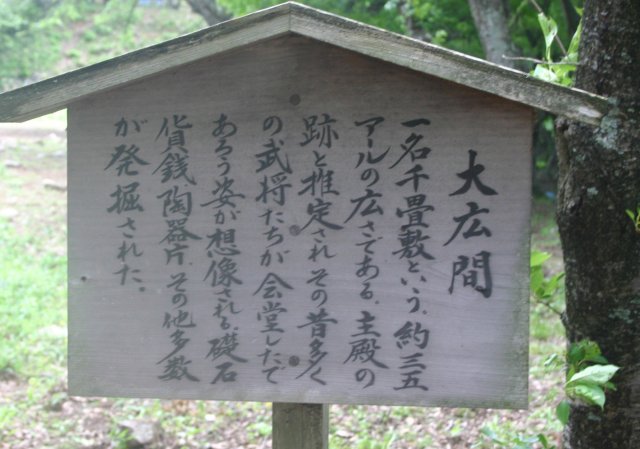 大広間
一名千畳敷という。約三五
アールの広さである。主殿の
跡と推定され、その昔多く
の武将たちが会堂したで
あろう姿が想像される。礎石
貨銭陶器片、その他多数
が発掘された。